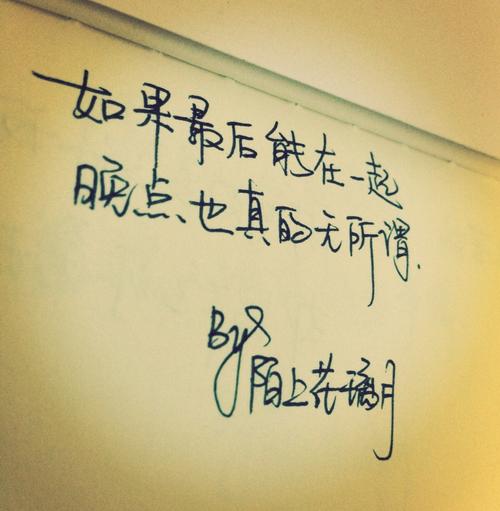 如果最后能在一起
晚点也真的无所谓.
By
陌上花璃月